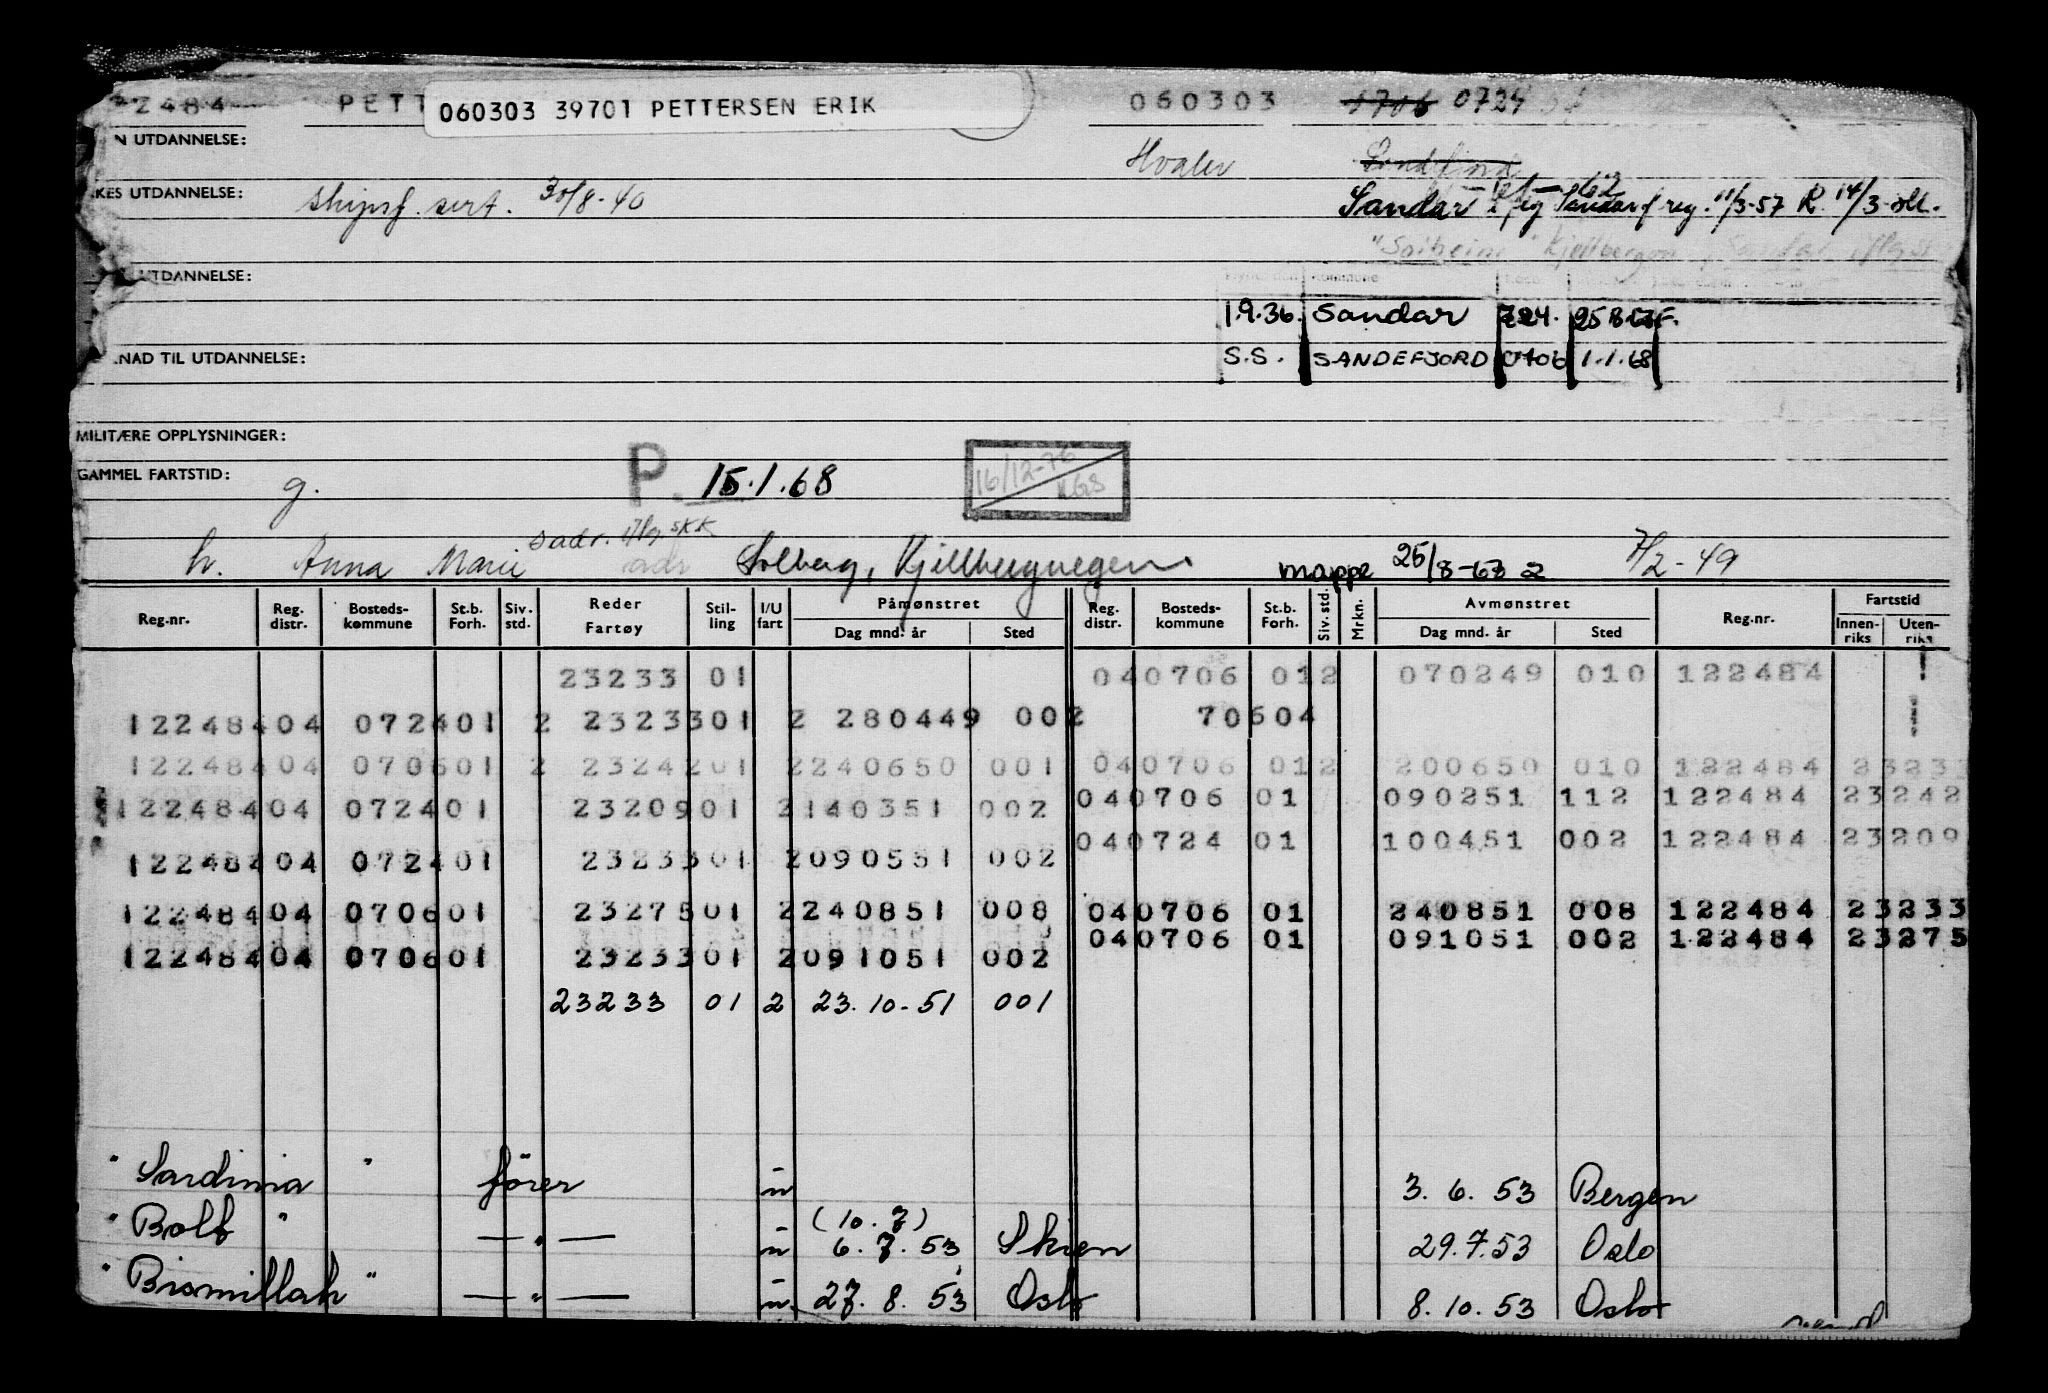 22484 PETT 060303 39701 PETTERSEN ERIK 060303 1706 0724
N UTDANNELSE: Hvaler Sandefjord
KES UTDANNELSE: skipsf. sert. 30/8-40 Sandar reg. 11/3-57 R. 14/3
"Solheim" Kjellbergvn, Sandar
UTDANNELSE:
1.9.36. Sandar 724. 25 8 67 F.
NAD TIL UTDANNELSE: S.S. SANDEFJORD 0706 1.1.68
MILITÆRE OPPLYSNINGER:
GAMMEL FARTSTID: g. P. 15.1.68 16/12-76 KGS
h. Anna Marie sadr. iflg. SKK adr Solberg, Kjellbergvegen. mappe 25/8-67 2 7/2-49
Reg.nr. Reg. distr. Bosteds- kommune St.b. Forh. Siv. std. Reder Fartøy Stil- ling I/U fart Påmønstret Dag mnd. år Sted Reg. distr. Bosteds- kommune St.b. Forh. Siv. std. Mrkn. Avmønstret Dag mnd. år Sted Reg.nr. Fartstid Innen- riks Uten- riks
23233 01 040706 012 070249 010 122484
12248404 072401 2 2323301 2 280449 002 70604
12248404 070601 2 2324201 2240650 001 040706 012 200650 010 122484 23233
12248404 072401 2320901 2140351 002 040706 01 090251 112 122484 23242
12248404 072401 2323301 2090551 002 040724 01 100451 002 122484 23209
12248404 070601 2327501 2240851 008 040706 01 240851 008 122484 23233
12248404 070601 2323301 2091051 002 040706 01 091051 002 122484 23275
23233 01 2 23.10-51 001
"Sardinia" fører u 3. 6. 53 Bergen
"Bolt" — " — u (10.7) 6. 7. 53 Skien 29.7.53 Oslo
"Bismillah" — " — u. 27. 8. 53 Oslo 8. 10. 53 Oslo